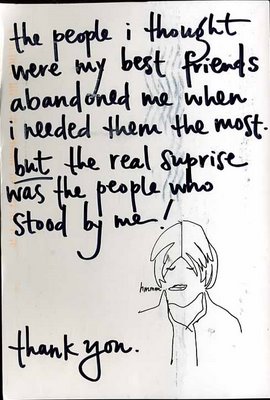 the people i thought
were my best friends
abandoned me when
i needed them the most.
but the real suprise
was the people who
stood by me!
hmmm
thank you.